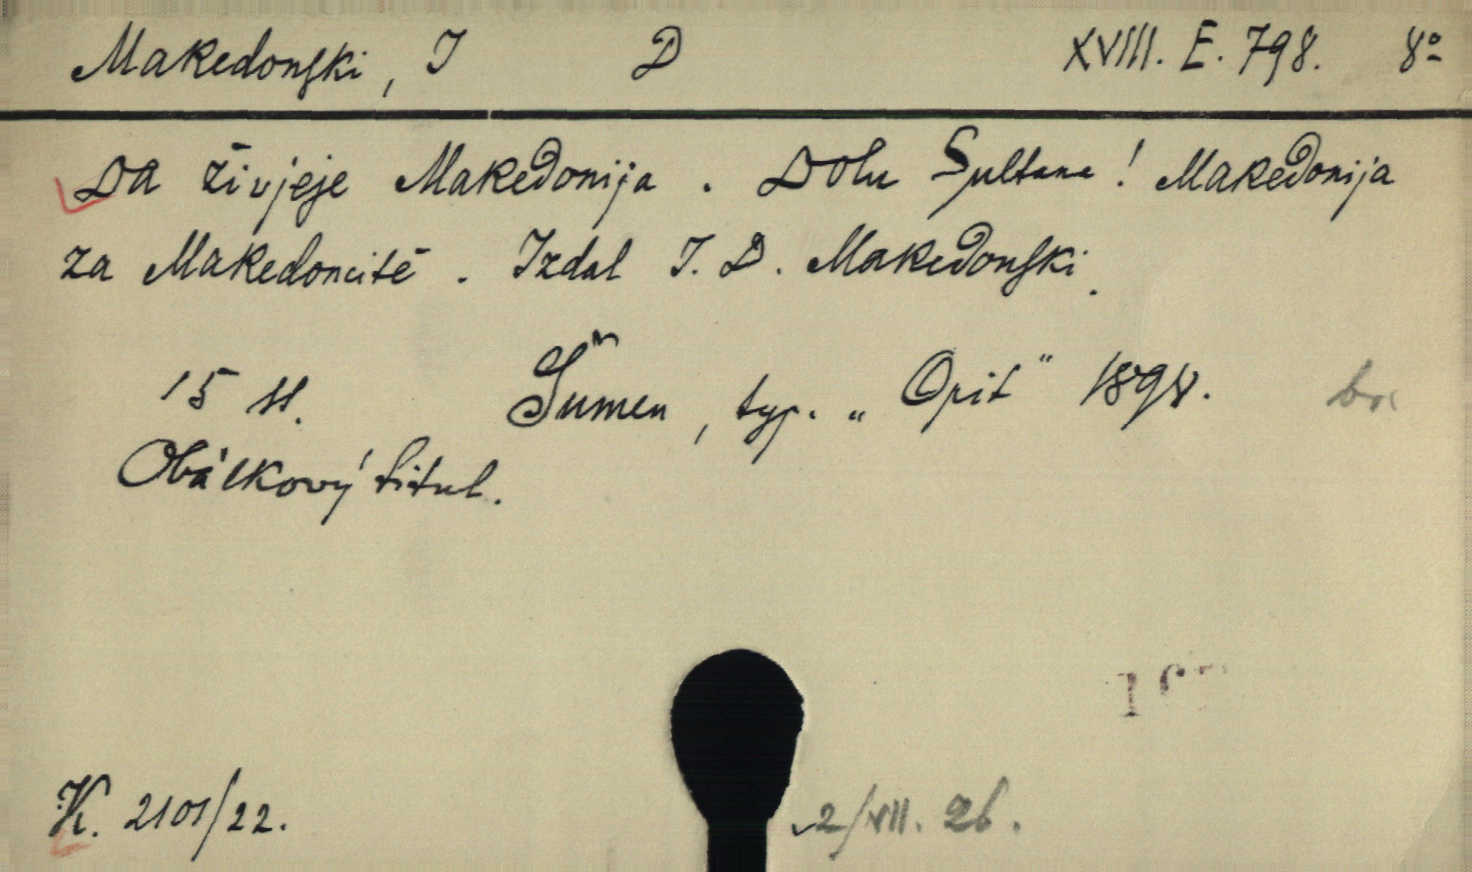 Makedonski, I D XVIII. E. 798. 8°
Da živjeje Makedonija. Dolu Sultana! Makedonija
za Makedoncitě. Izdal I. D. Makedonski.
15 ss. Šumen, typ. „Opit" 1898.
Obálkový titul.
K. 2101/22. 2/VII. 26.